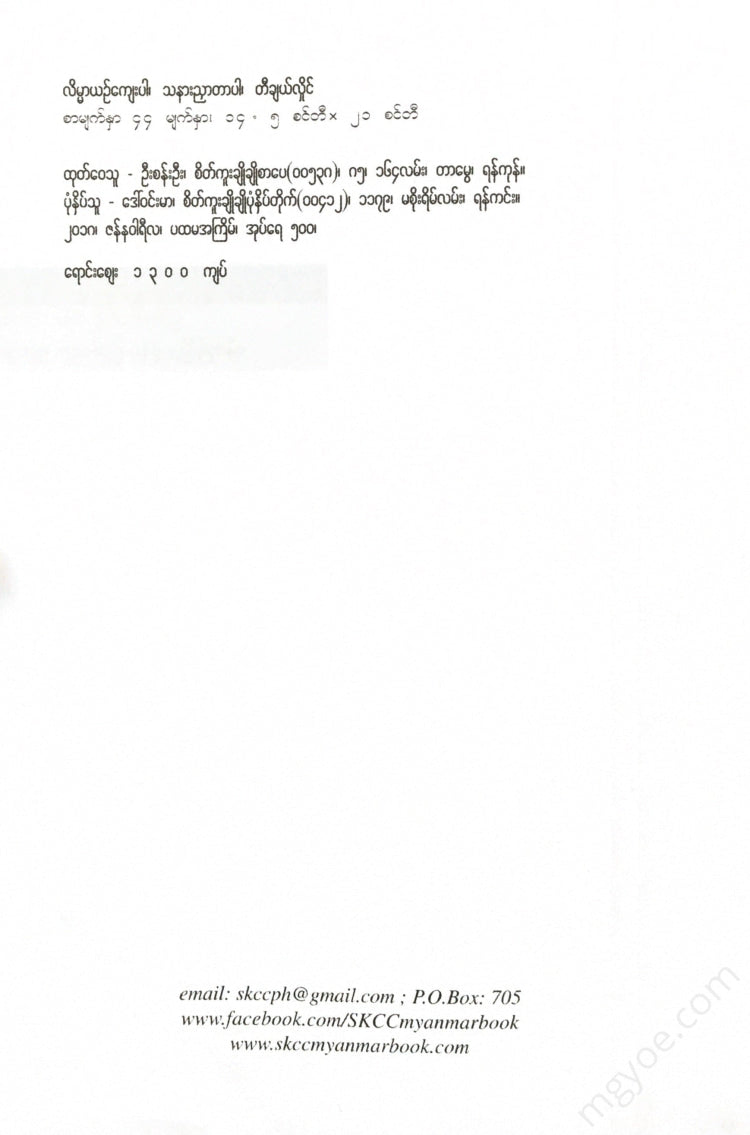 လိမ္မာယဉ်ကျေးပါ၊ သနားညှာတာပါ၊ တီချယ်လှိုင်
စာမျက်နှာ ၄၄ မျက်နှာ၊ ၁၄.၅ စင်တီ× ၂၁ စင်တီ
ထုတ်ဝေသူ - ဦးစန်းဦး၊ စိတ်ကူးချိုချိုစာပေ(၀၀၅၃၈)၊ ဂ၅၊ ၁၆၄လမ်း၊ တာမွေ၊ ရန်ကုန်။
ပုံနှိပ်သူ - ဒေါ်ဝင်းမာ၊ စိတ်ကူးချိုချိုပုံနှိပ်တိုက်(၀၀၄၁၂)၊ ၁၁၇၉၊ မစိုးရိမ်လမ်း၊ ရန်ကင်း။
၂၀၁၈၊ ဇန်နဝါရီလ၊ ပထမအကြိမ်၊ အုပ်ရေ ၅၀၀၊
ရောင်းဈေး ၁၃၀၀ ကျပ်
email: skccph@gmail.com ; P.O.Box: 705
www.facebook.com/SKCCmyanmarbook
www.skccmyanmarbook.com
mgyoe.com